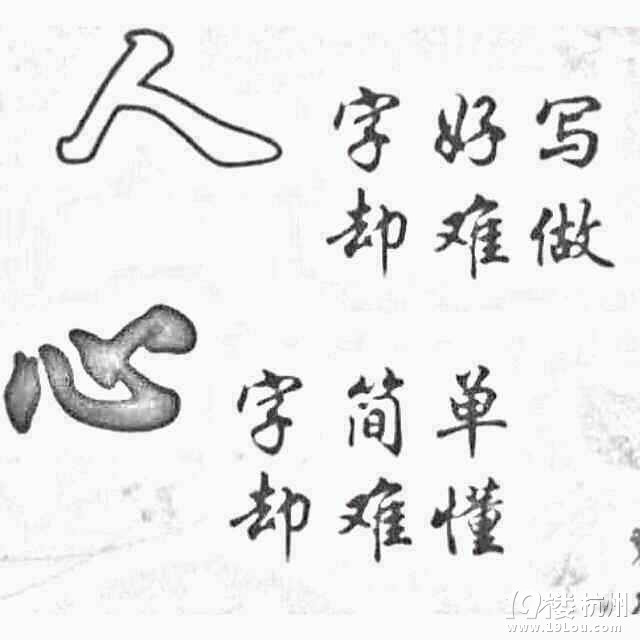 人字好写
却难做
心字简单
却难懂
19楼杭州
www.19lou.com